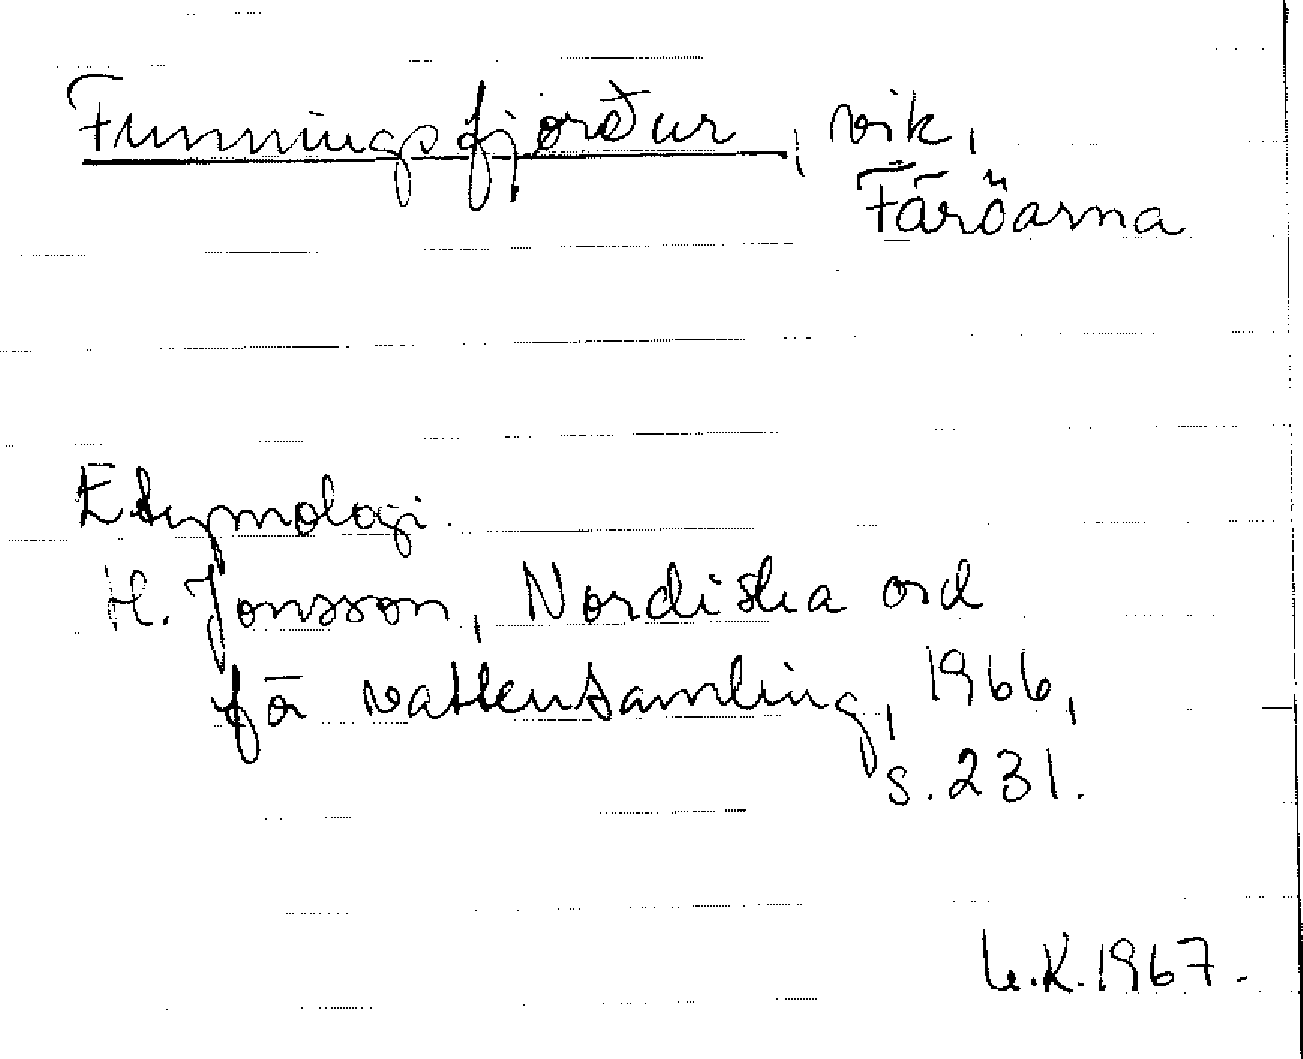 Funningsfjørður, vik,
Färöarna
Etymologi.
H. Jonsson, Nordiska ord
för vattensamling, 1966,
s. 231.
U.K. 1967.